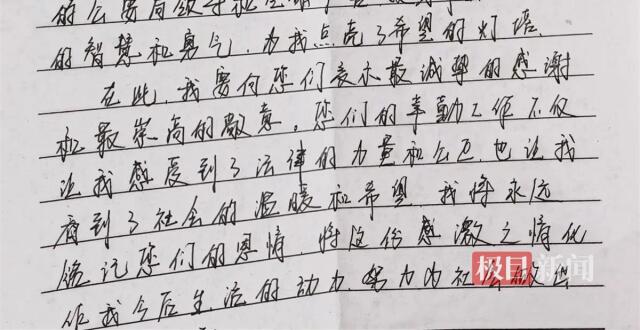 的公安局领导和全体
的智慧和勇气，为我点亮了希望的灯塔
在此，我要向您们表示最诚挚的感谢
和最崇高的敬意，您们的辛勤工作不仅
让我感受到了法律的力量和公正，也让我
看到了社会的温暖和希望，我将永远
铭记您们的恩情，将这份感激之情化
作我今后生活的动力，努力为社会做出
极目新闻